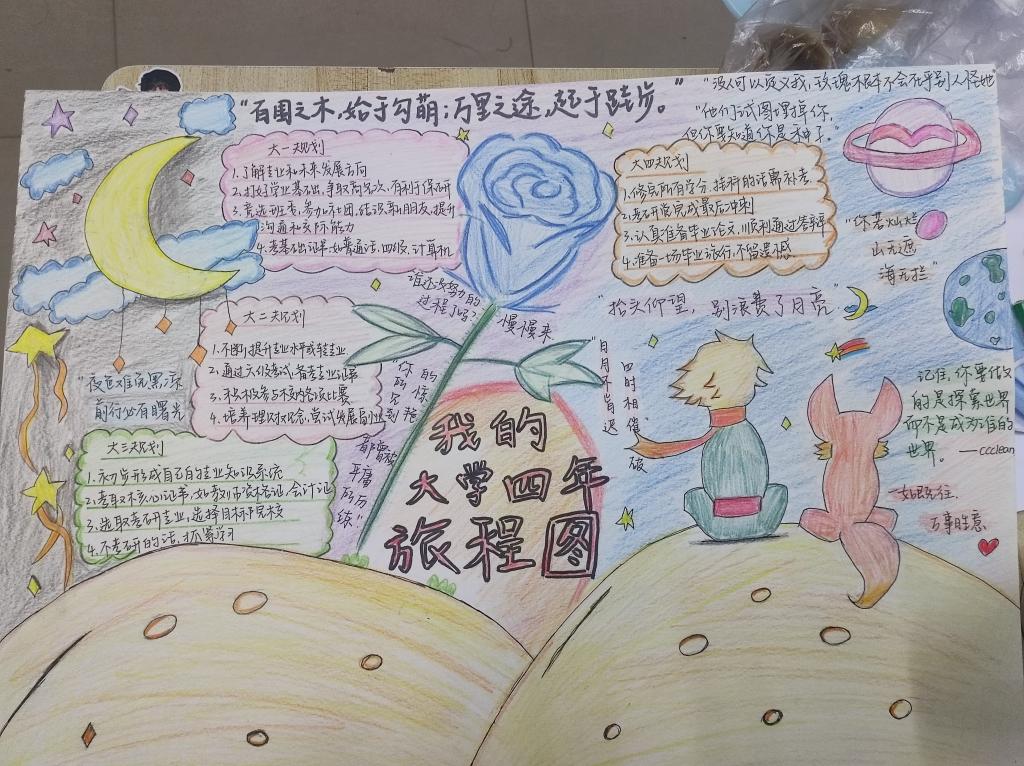 "百围之木,始于勾萌;万里之途,起于跬步。"
"没人可以定义我,玫瑰根本不会在乎别人怪她
"他们试图埋掉你,
但你要知道你是种子."
大一规划
1.了解专业和未来发展方向
2.打好学业基础,争取高名次,有利于保研
3.竞选班委,参加社团,结识新朋友,提升
沟通和交际能力
4.考基础证书如普通话,四级,计算机
大二规划
1.不断提升专业水平或转专业
2.通过六级考试,备考专业证书
3.积极参与不校内各类比赛
4.培养理财观念,尝试发展副业
大三规划
1.初步形成自己的专业知识系统
2.考取核心证书,如教师资格证,会计证
3.选取考研专业,选择目标院校
4.不考研的话,抓紧学习
大四规划
1.修完所有学分,挂科的话需补考.
2.考研党完成最后冲刺
3.认真准备毕业论文,顺利通过答辩
4.准备一场毕业旅行,不留遗憾
谁还没努力的
过程了吗?
慢慢来
"夜色难免黑凉
前行必有曙光
我的
大学四年
旅程图
"抬头仰望,别浪费了月亮
"日月不肯迟
四时相催
"你若灿烂
山无遮
海无拦"
记住,你要做
的是探索世界
而不是成为谁的
世界。—ccclean
一如既往.
万事胜意